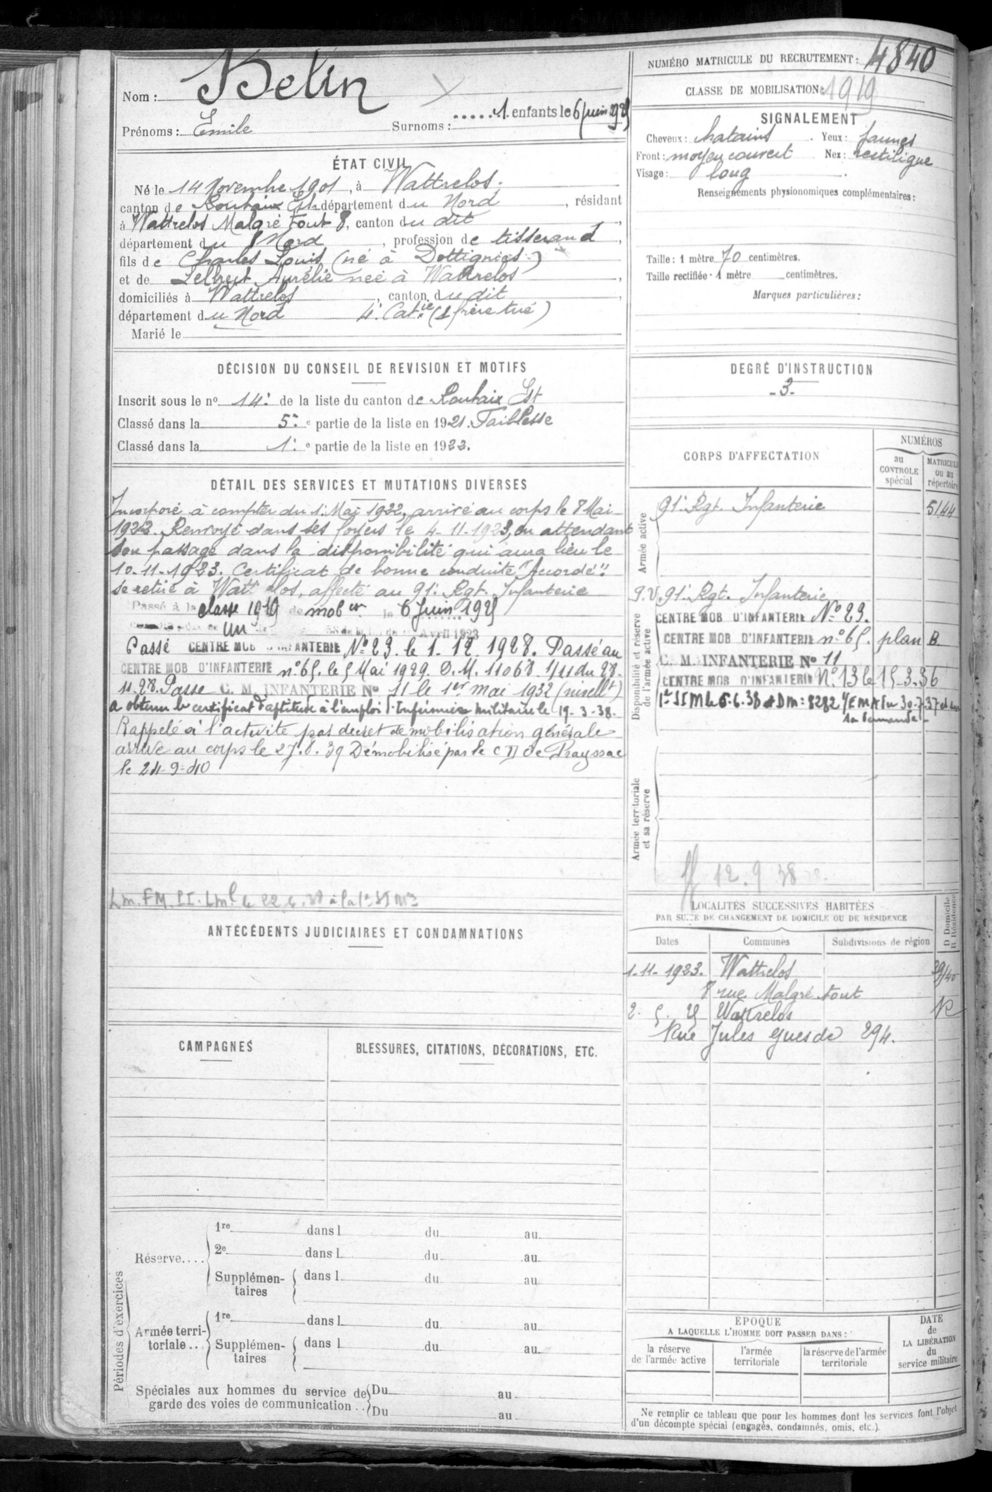 Nom : Belin
1 enfants le 6 juin 1925
Prénoms : Emile Surnoms :
ÉTAT CIVIL
Né le 14 Novembre 1901, à Wattrelos.
canton de Roubaix Est département du Nord, résidant
à Wattrelos Malgré Tout 8, canton du dit,
département du Nord, profession de tisserand,
fils de Charles Louis (né à Dottignies)
et de Aurélie née à Wattrelos,
domiciliés à Wattrelos, canton du dit,
département du Nord 4e Catie (1 frère tué)
Marié le
DÉCISION DU CONSEIL DE REVISION ET MOTIFS
Inscrit sous le no 14 de la liste du canton de Roubaix Est
Classé dans la 5e partie de la liste en 1921. Faiblesse
Classé dans la 1e partie de la liste en 1923.
DÉTAIL DES SERVICES ET MUTATIONS DIVERSES
Incorporé à compter du 1er Mai 1922, arrivé au corps le 8 Mai
1922. Renvoyé dans ses foyers le 4-11-1923, en attendant
son passage dans la disponibilité qui aura lieu le
10-11-1923. Certificat de bonne conduite "Accordé".
se retire à Wattrelos, affecté au 91e Rgt. Infanterie
Passé à la classe 1919 de mobon le 6 Juin 1925
un Avril 1923
Passé CENTRE MOB D'INFANTERIE No 23. le 1.12.1928. Passé au
CENTRE MOB D'INFANTERIE no 65. le 5 Mai 1929. D.M. 11068 1/11 du 28.
11.28. Passé C. M. INFANTERIE No 11 le 1er mai 1932
a obtenu le certificat d'aptitude à l'emploi d'Infirmier militaire le 19-3-38.
Rappelé à l'activité par décret de mobilisation générale
arrivé au corps le 27.8.39 Démobilisé par le C D de Prayssac
le 24-9-40
ANTÉCÉDENTS JUDICIAIRES ET CONDAMNATIONS
CAMPAGNES
BLESSURES, CITATIONS, DÉCORATIONS, ETC.
Périodes d'exercices
Réserve....
1re dans l du au
2e dans l du au
Supplémen- dans l du au
taires
Armée terri-
toriale...
1re dans l du au
Supplémen- dans l du au
taires
Spéciales aux hommes du service de Du au
garde des voies de communication .. Du au
NUMÉRO MATRICULE DU RECRUTEMENT : 4840
CLASSE DE MOBILISATION : 1919
SIGNALEMENT
Cheveux : chatains. Yeux : jaunes
Front : moyen couvert Nez : rectiligne
Visage : long
Renseignements physionomiques complémentaires :
Taille : 1 mètre 70 centimètres.
Taille rectifiée : 1 mètre centimètres.
Marques particulières :
DEGRÉ D'INSTRUCTION
-3-
CORPS D'AFFECTATION
NUMÉROS
au
CONTROLE
spécial
MATRICULE
ou au
répertoire
Armée active
91e Rgt. Infanterie 5144
Disponibilité et réserve
de l'armée active
91e Rgt. Infanterie
CENTRE MOB D'INFANTERIE No 23.
CENTRE MOB D'INFANTERIE no 65. plan B
C. M. INFANTERIE No 11
CENTRE MOB D'INFANTERIE No 13 le 15.3.36
Armée territoriale
et sa réserve
12.9.38
LOCALITÉS SUCCESSIVES HABITÉES
PAR SUITE DE CHANGEMENT DE DOMICILE OU DE RÉSIDENCE
Dates Communes Subdivisions de région D. Domicile
R. Résidence
1-11-1923. Wattrelos
8 rue Malgré tout
2. 5. 28 Wattrelos R
Rue Jules Guesde 294.
EPOQUE
A LAQUELLE L'HOMME DOIT PASSER DANS :
la réserve
de l'armée active
l'armée
territoriale
la réserve de l'armée
territoriale
DATE
de
LA LIBÉRATION
du
service militaire
Ne remplir ce tableau que pour les hommes dont les services font l'objet
d'un décompte spécial (engagés, condamnés, omis, etc.).